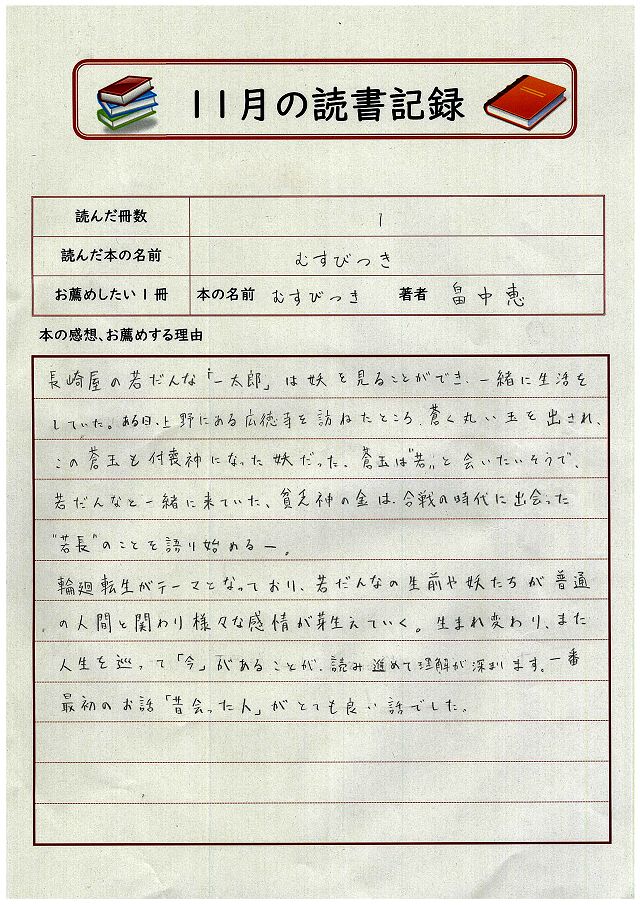 11月の読書記録
読んだ冊数 1
読んだ本の名前 むすびつき
お薦めしたい1冊 本の名前 むすびつき 著者 畠中恵
本の感想、お薦めする理由
長崎屋の若だんな「一太郎」は妖を見ることができ、一緒に生活を
していた。ある日、上野にある広徳寺を訪ねたところ、蒼く丸い玉を出され、
この蒼玉も付喪神になった妖だった。蒼玉は"若"と会いたいそうで、
若だんなと一緒に来ていた、貧乏神の金は、合戦の時代に出会った
"若長"のことを語り始めるー。
輪廻転生がテーマとなっており、若だんなの生前や妖たちが普通
の人間と関わり様々な感情が芽生えていく。生まれ変わり、また
人生を巡って「今」があることが、読み進めて理解が深まります。一番
最初のお話「昔会った人」がとても良い話でした。